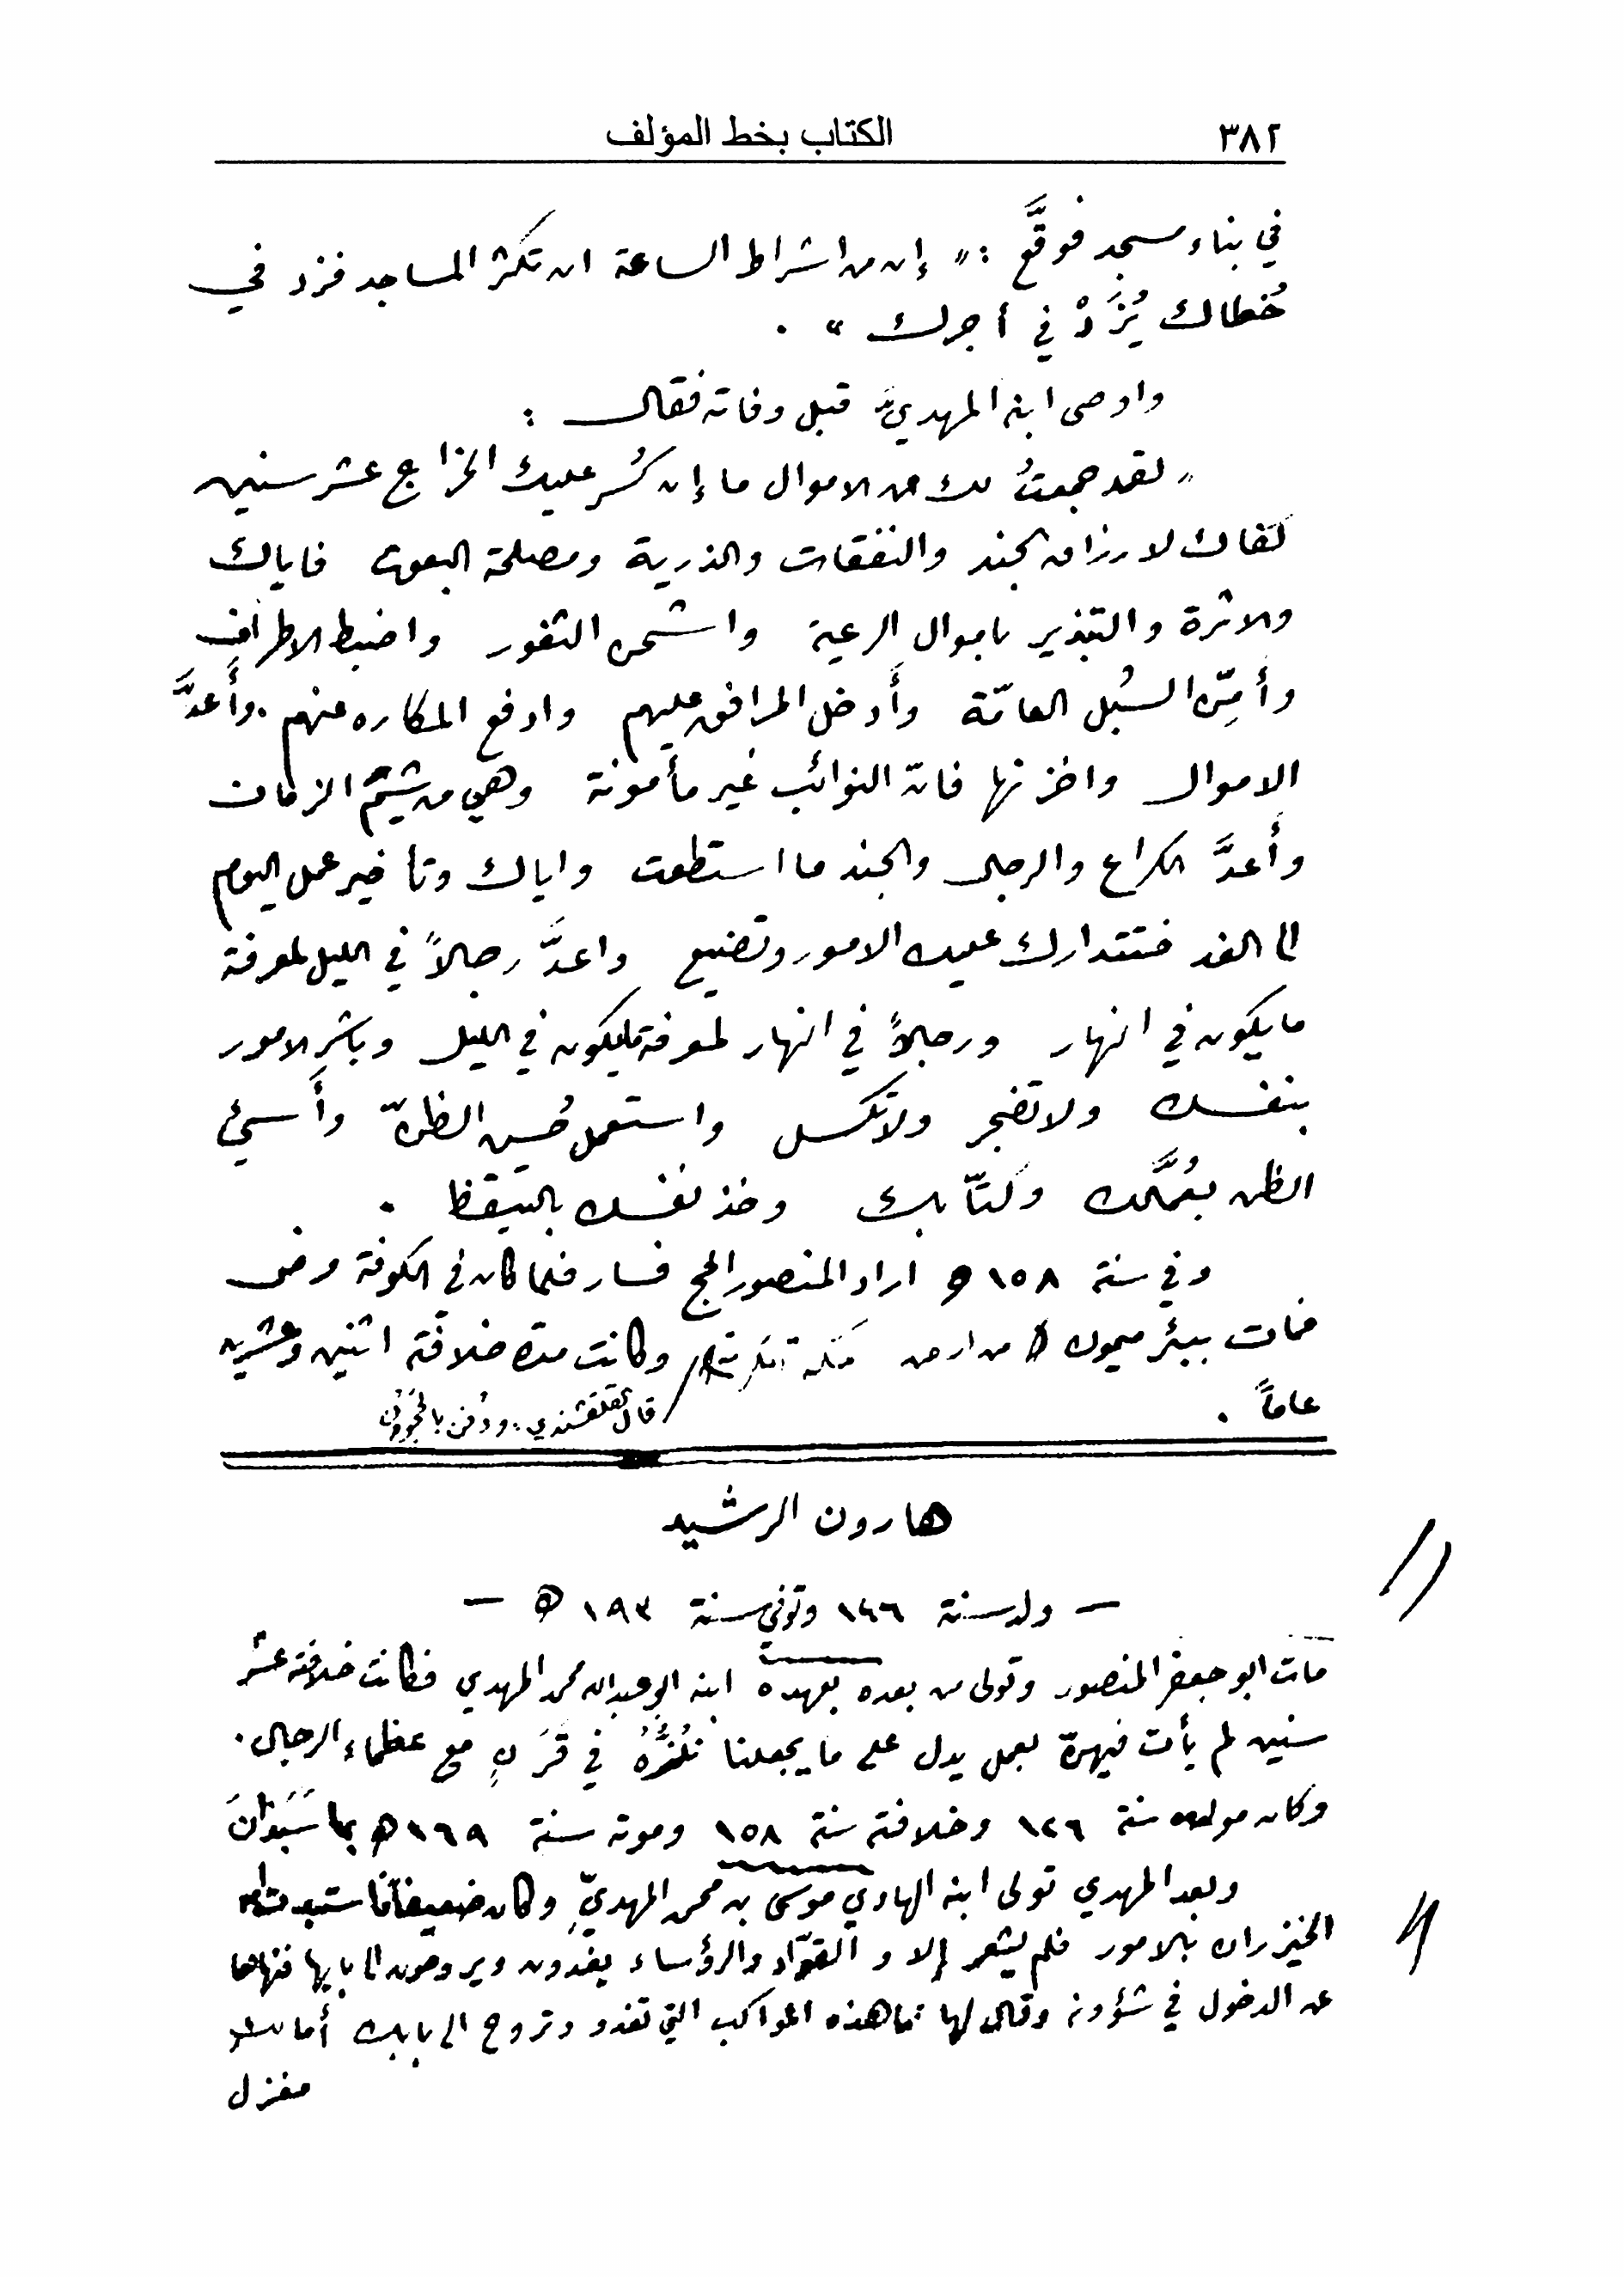 ٣٨٢
الكتاب بخط المؤلف
في بناء مسجد فوقَّع : « إن من اشراط الساعة ان تكثر المساجد فزد في
خُطاك يُزَدْ في أجرك » .
واوصى ابنه المهديَّ قبل وفاته فقال :
« لقد جمعتُ لك من الاموال ما إن كُسر عليك الخراج عشر سنين
كفاك لارزاق الجند والنفقات والذرية ومصلحة البعوث فاياك
والاثرة والتبذير باموال الرعية واشحن الثغور واضبط الاطراف
وأمِّن السُبل العامّة وأدخل المرافق عليهم وادفع المكاره عنهم . وأَعدَّ
الاموال واخزنها فانّ النوائب غير مأمونة وهي من شيَم الزمان
وأَعدَّ الكراع والرجال والجند ما استطعت واياك وتأخير عمل اليوم
الى الغد فتتدارك عليك الامور وتضيع واعدَّ رجالاً في الليل لمعرفة
ما يكون في النهار ورجالاً في النهار لمعرفة ما يكون في الليل وباشر الامور
بنفسك ولا تضجر ولا تكسل واستعمل حُسن الظنّ وأَسئ
الظن بعُمَّالك وكتّابك وخذ نفسك بالتيقظ .
وفي سنة ١٥٨ هـ اراد المنصور الحج فسار فلما كان في الكوفة مرض
فمات ببئر ميمون من ارض مكة المكرمة وكانت مدة خلافته اثنين وعشرين
عاماً .
قال القلقشندي : ودُفن بالحَجُون
هارون الرشيد
— ولد سنة ١٤٦ وتوفي سنة ١٩٣ هـ —
مات ابو جعفر المنصور وتولى من بعده بعهده ابنه ابو عبد الله محمد المهدي فكانت خلافته عشر
سنين لم يأت فيهنّ بعمل يدل على ما يجعلنا نَلُزُّهُ في قَرَنٍ مع عظماء الرجال .
وكان مولده سنة ١٢٦ وخلافته سنة ١٥٨ وموته سنة ١٦٩ هـ بماسَبَذانَ
وبعد المهدي تولى ابنه الهادي موسى بن محمد المهديِّ وكان ضعيفاً فاستبدت
الخيزران بالامور فلم يشعر إلا و القوّاد والرؤساء يغدون ويروحون الى بابها فنهاها
عن الدخول في شؤونه وقال لها : ما هذه المواكب التي تغدو وتروح الى بابك أما لك
مغزل